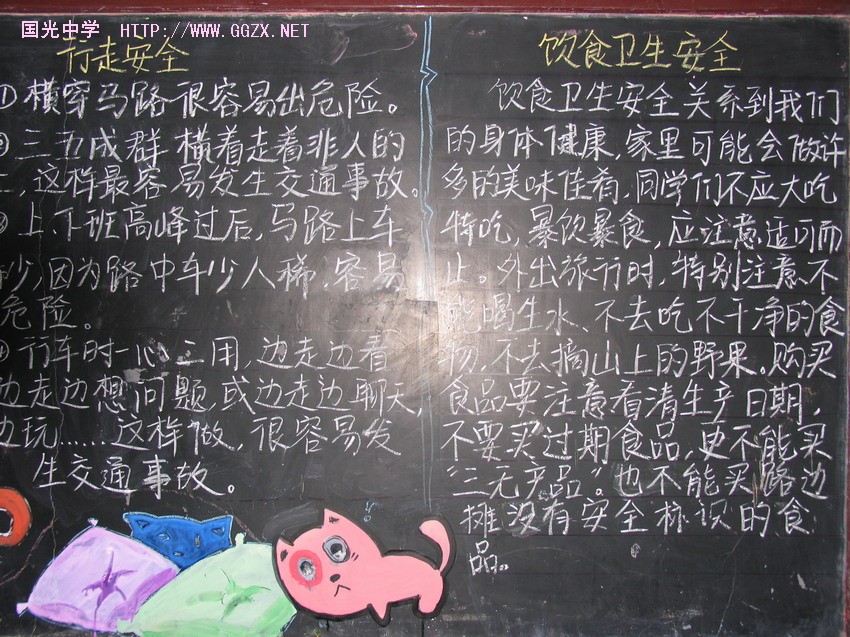 国光中学 WWW.GGZX.NET
行走安全
①横穿马路很容易出危险。
三五成群横着走着非人的
，这样最容易发生交通事故。
上、下班高峰过后，马路上车
少，因为路中车少人稀，容易
危险。
行车时一心二用，边走边看
边走边想问题，或边走边聊天，
边玩……这样做，很容易发
生交通事故。
饮食卫生安全
饮食卫生安全关系到我们
的身体健康，家里可能会做许
多的美味佳肴，同学们不应大吃
特吃，暴饮暴食，应注意适可而
止。外出旅行时，特别注意不
能喝生水、不去吃不干净的食
物，不去摘山上的野果。购买
食品要注意看清生产日期，
不要买过期食品，更不能买
“三无产品”。也不能买路边
摊没有安全标识的食
品。